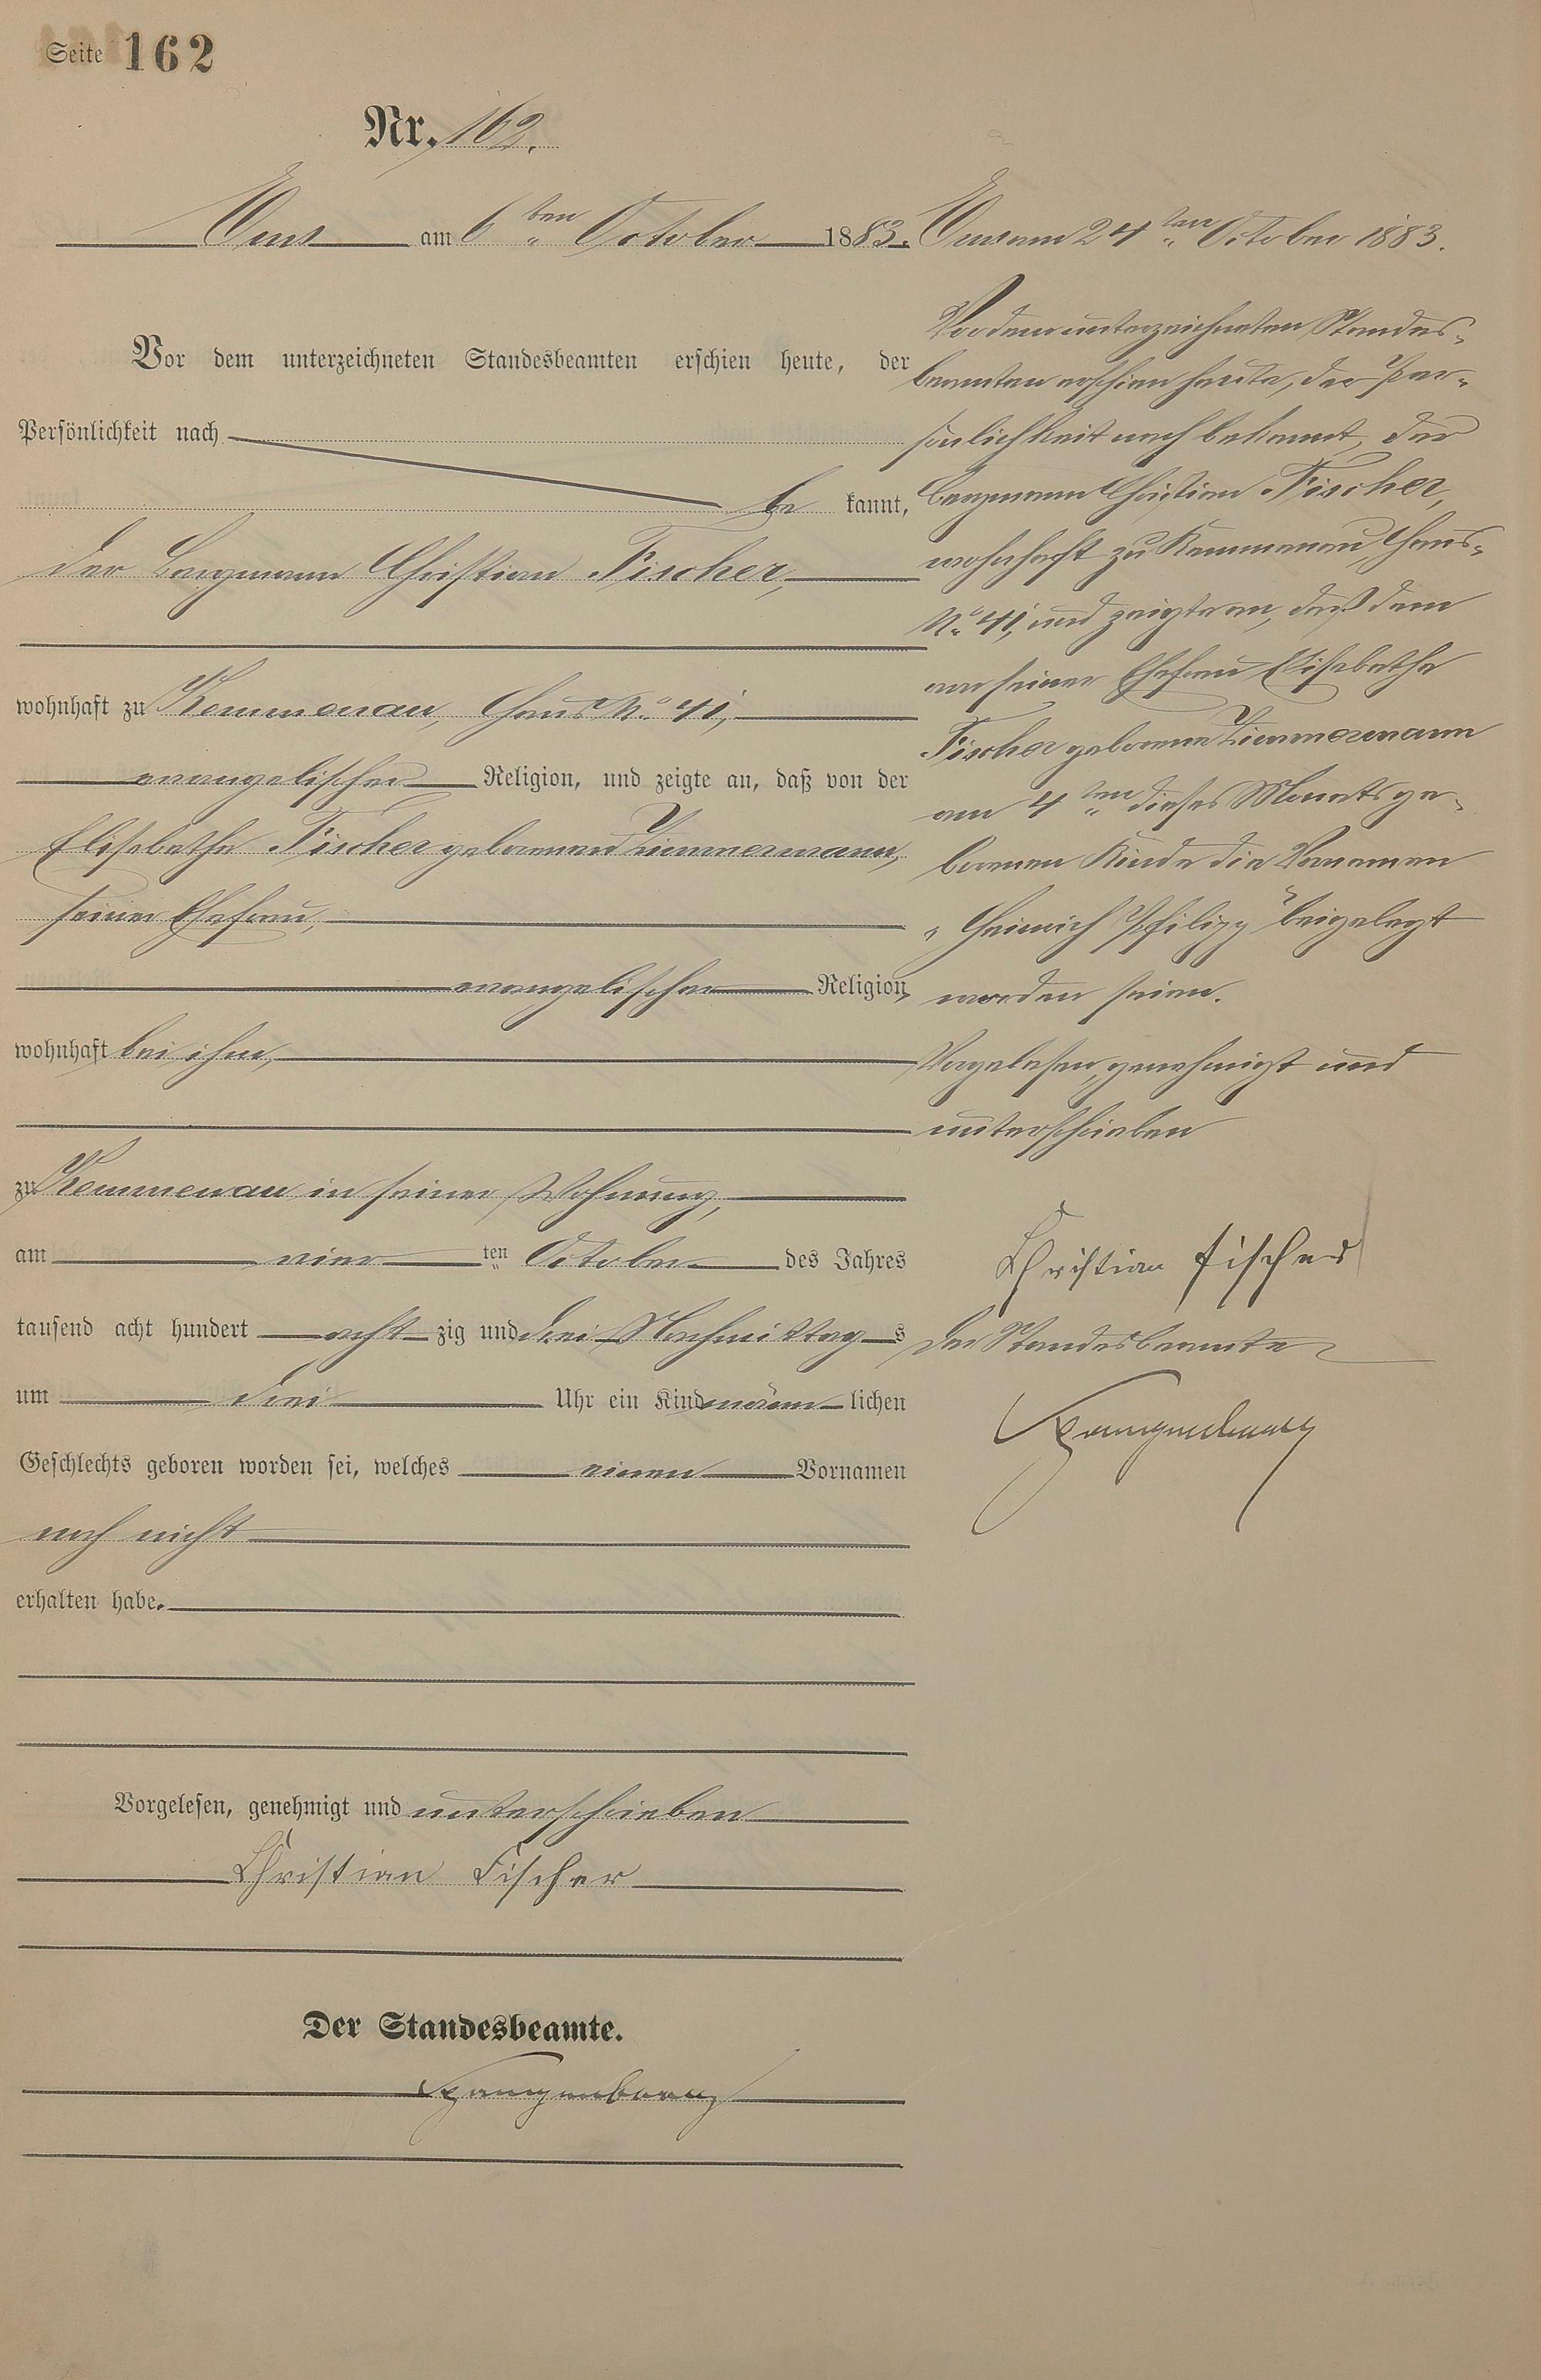 Seite 162
Nr. 162.
Ems am 6ten October 1883.
Vor dem unterzeichneten Standesbeamten erschien heute, der
Persönlichkeit nach
be kannt,
der Bergmann Christian Fischer,
wohnhaft zu Kemmenau, Haus No. 41,
evangelischer Religion, und zeigte an, daß von der
Elisabethe Fischer geborenen Zimmermann,
seiner Ehefrau,
evangelischer Religion,
wohnhaft bei ihm,
zu Kemmenau in seiner Wohnung,
am vier ten October des Jahres
tausend acht hundert acht zig und drei Nachmittag s
um drei Uhr ein Kind männ lichen
Geschlechts geboren worden sei, welches einen Vornamen
noch nicht
erhalten habe.
Vorgelesen, genehmigt und unterschrieben
Christian Fischer
Der Standesbeamte.
Ems am 24ten October 1883.
Vor dem unterzeichneten Standes-
beamten erschien heute, der Per-
sönlichkeit nach bekannt, der
Bergmann Christian Fischer,
wohnhaft zu Kemmenau, Haus-
No. 41, und zeigte an, daß dem
von seiner Ehefrau Elisabethe
Fischer geborene Zimmermann
am 4ten dieses Monats ge-
borenen Kinde die Vornamen
"Heinrich Philipp" beigelegt
worden seien.
Vorgelesen, genehmigt und
unterschrieben
Christian Fischer
Der Standesbeamte